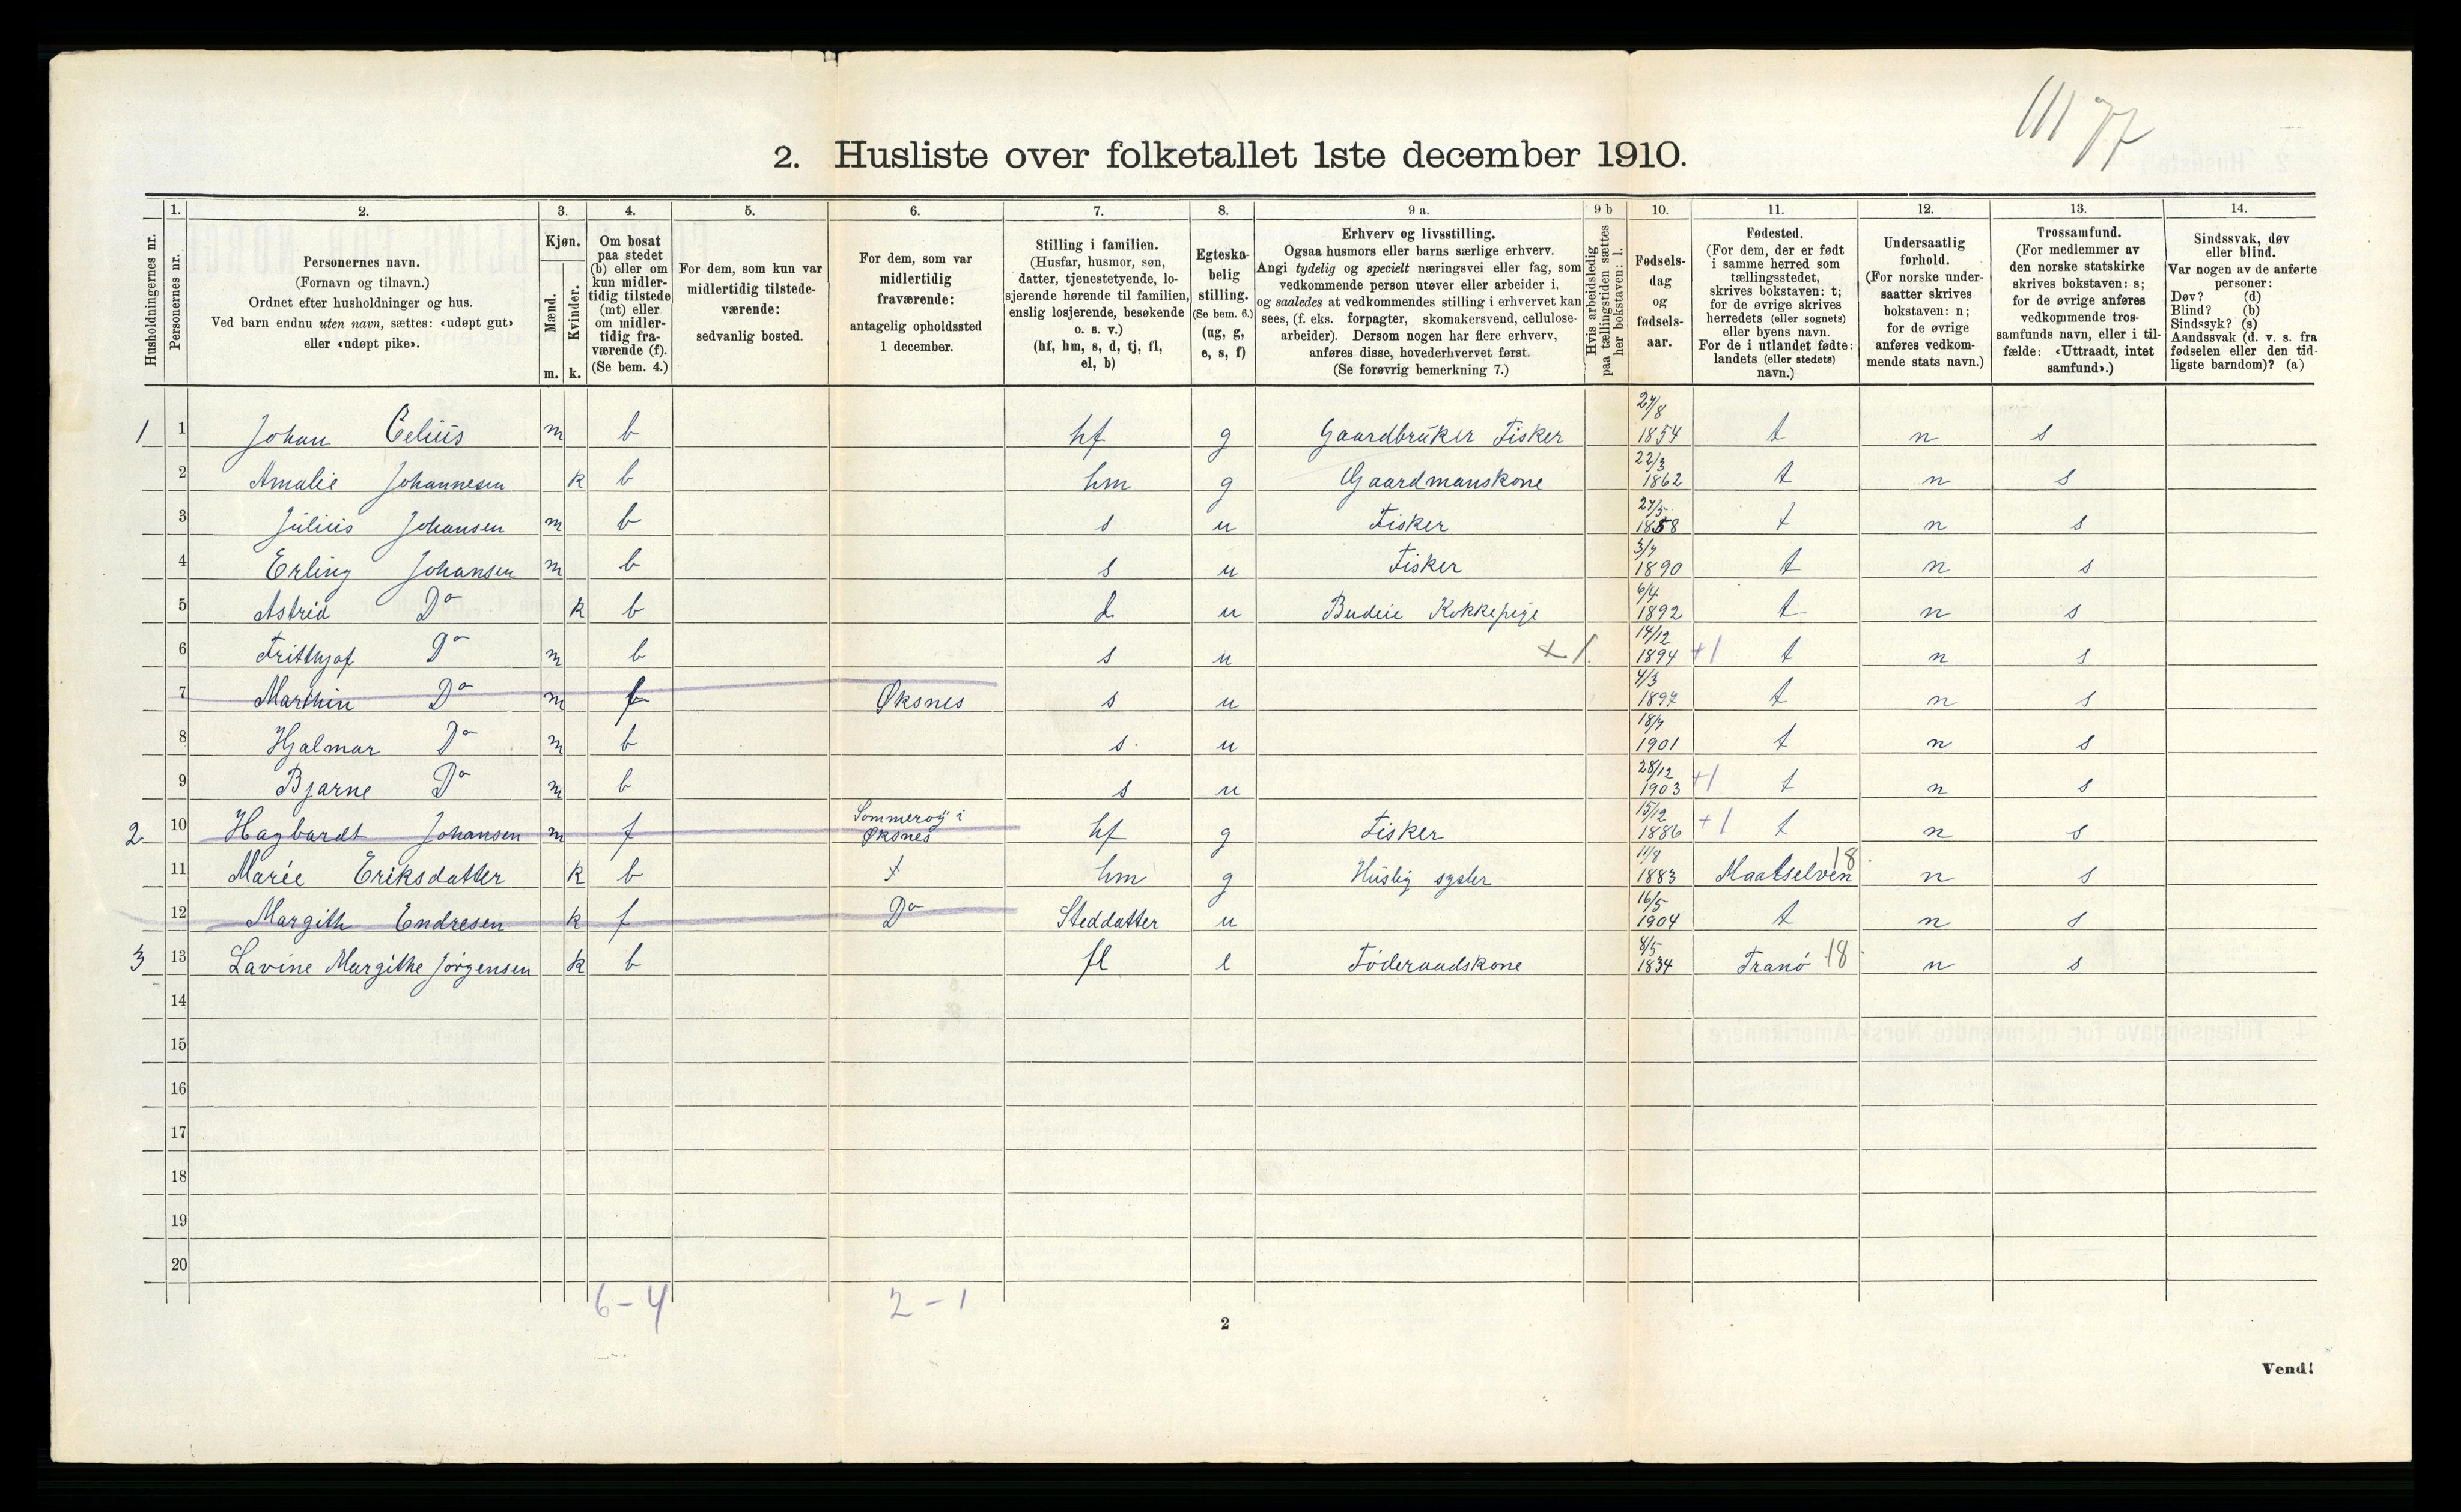 111 77
2. Husliste over folketallet 1ste december 1910.
Husholdningernes nr.
1.
Personernes nr.
2.
Personernes navn.
(Fornavn og tilnavn.)
Ordnet efter husholdninger og hus.
Ved barn endnu uten navn, sættes: «udøpt gut»
eller «udøpt pike».
3.
Kjøn.
Mænd.
Kvinder.
m. k.
4.
Om bosat
paa stedet
(b) eller om
kun midler-
tidig tilstede
(mt) eller
om midler-
tidig fra-
værende (f).
(Se bem. 4.)
5.
For dem, som kun var
midlertidig tilstede-
værende:
sedvanlig bosted.
6.
For dem, som var
midlertidig
fraværende:
antagelig opholdssted
1 december.
7.
Stilling i familien.
(Husfar, husmor, søn,
datter, tjenestetyende, lo-
sjerende hørende til familien,
enslig losjerende, besøkende
o. s. v.)
(hf, hm, s, d, tj, fl,
el, b)
8.
Egteska-
belig
stilling.
(Se bem. 6.)
(ug, g,
e, s, f)
9 a.
Erhverv og livsstilling.
Ogsaa husmors eller barns særlige erhverv.
Angi tydelig og specielt næringsvei eller fag, som
vedkommende person utøver eller arbeider i,
og saaledes at vedkommendes stilling i erhvervet kan
sees, (f. eks. forpagter, skomakersvend, cellulose-
arbeider). Dersom nogen har flere erhverv,
anføres disse, hovederhvervet først.
(Se forøvrig bemerkning 7.)
9 b
Hvis arbeidsledig
paa tællingstiden sættes
her bokstaven: l.
10.
Fødsels-
dag
og
fødsels-
aar.
11.
Fødested.
(For dem, der er født
i samme herred som
tællingsstedet,
skrives bokstaven: t;
for de øvrige skrives
herredets (eller sognets)
eller byens navn.
For de i utlandet fødte:
landets (eller stedets)
navn.)
12.
Undersaatlig
forhold.
(For norske under-
saatter skrives
bokstaven: n;
for de øvrige
anføres vedkom-
mende stats navn.)
13.
Trossamfund.
(For medlemmer av
den norske statskirke
skrives bokstaven: s;
for de øvrige anføres
vedkommende tros-
samfunds navn, eller i til-
fælde: «Uttraadt, intet
samfund».)
14.
Sindssvak, døv
eller blind.
Var nogen av de anførte
personer:
Døv? (d)
Blind? (b)
Sindssyk? (s)
Aandssvak (d. v. s. fra
fødselen eller den tid-
ligste barndom)? (a)
1 1 Johan Celius m b hf g Gaardbruker Fisker 27/8 1854 t n s
2 Amalie Johannesen k b hm g Gaardmanskone 22/3 1862 t n s
3 Julius Johansen m b s u Fisker 27/5 1888 t n s
4 Erling Johansen m b s u Fisker 3/7 1890 t n s
5 Astrid Do k b d u Budeie Kokkepige 6/4 1892 t n s
6 Frithjof Do m b s u +1 14/12 1894 +1 t n s
7 Marthin Do m f Øksnes s u 4/3 1897 t n s
8 Hjalmar Do m b s u 18/7 1901 t n s
9 Bjarne Do m b s u 28/12 1903 +1 t n s
2 10 Hagbardt Johansen m f Sommerøy i Øksnes hf g Fisker 15/12 1886 +1 t n s
11 Marie Eriksdatter k b + hm g Huslig sysler 11/8 1883 Maalselven 18 n s
12 Margith Endresen k f Do Steddatter u 16/5 1904 t n s
3 13 Lavine Margithe Jørgensen k b fl e Føderaadskone 8/5 1834 Tranø 18 n s
14
15
16
17
18
19
20
6-4 2-1
2
Vend!